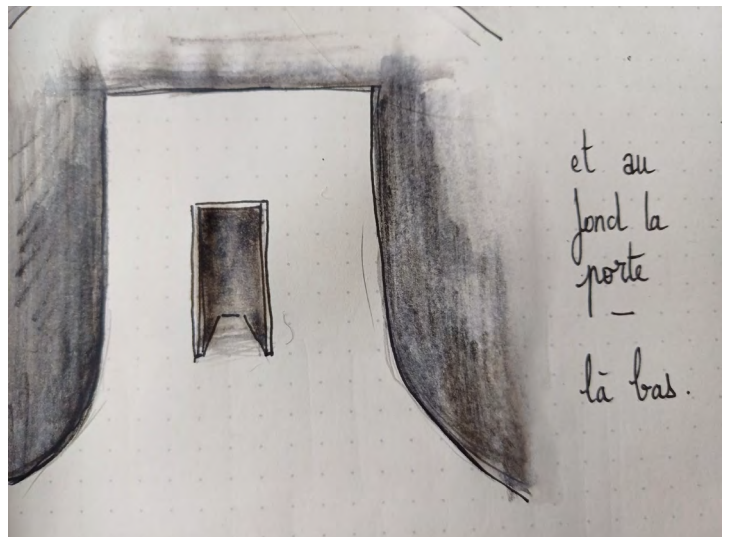 et au
fond la
porte
—
là bas.